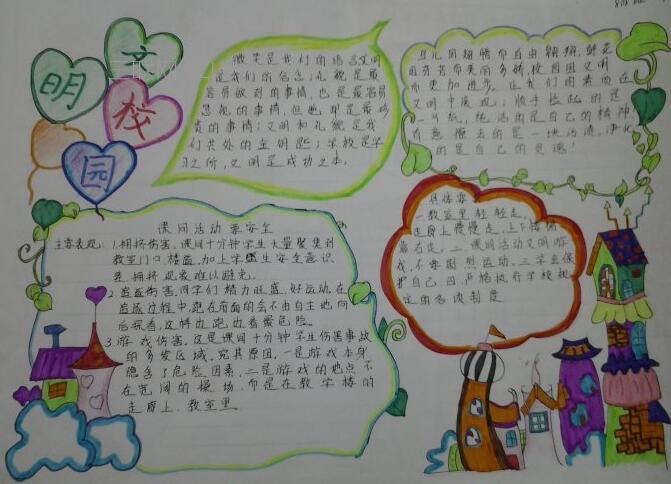 文明校园
微笑是我们的语言文明
是我们的信念;礼貌是最
容易做到的事情,也是最容易
忽视的事情,但她却是最珍
贵的事情;文明和礼貌是我
们共处的金钥匙;学校是学
习之所,文明是成功之本。
鸟儿因翅膀而自由翱翔,鲜花
因芬芳而美丽多娇,校园因文明
而更加进步。让我们用素质在
文明中展现:顺手捡起的是
一片纸,纯洁的是自己的精神
有意擦去的是一块污渍,净化
的是自己的灵魂!
课间活动要安全
主要表现:1.拥挤伤害。课间十分钟学生大量聚集到
教室门口,楼道,加上学生安全意识
差,拥挤现象难以避免。
2.追逐伤害,同学们精力旺盛,好运动,在
追逐过程中,跑在前面的会不由自主地向
后观看,这样边跑边看最危险。
3.游戏伤害,这是课间十分钟学生伤害事故
的多发区域,究其原因,一是游戏本身
隐含了危险因素,二是游戏的地点不
在宽阔的操场,而是在教学楼的
走廊上、教室里
具体要
一教室里轻轻走,
走廊上慢慢走,上下楼梯
靠右走。二课间活动文明游
戏,不要剧烈运动。三学会保
护自己。四.严格执行学校规
定的各项制度